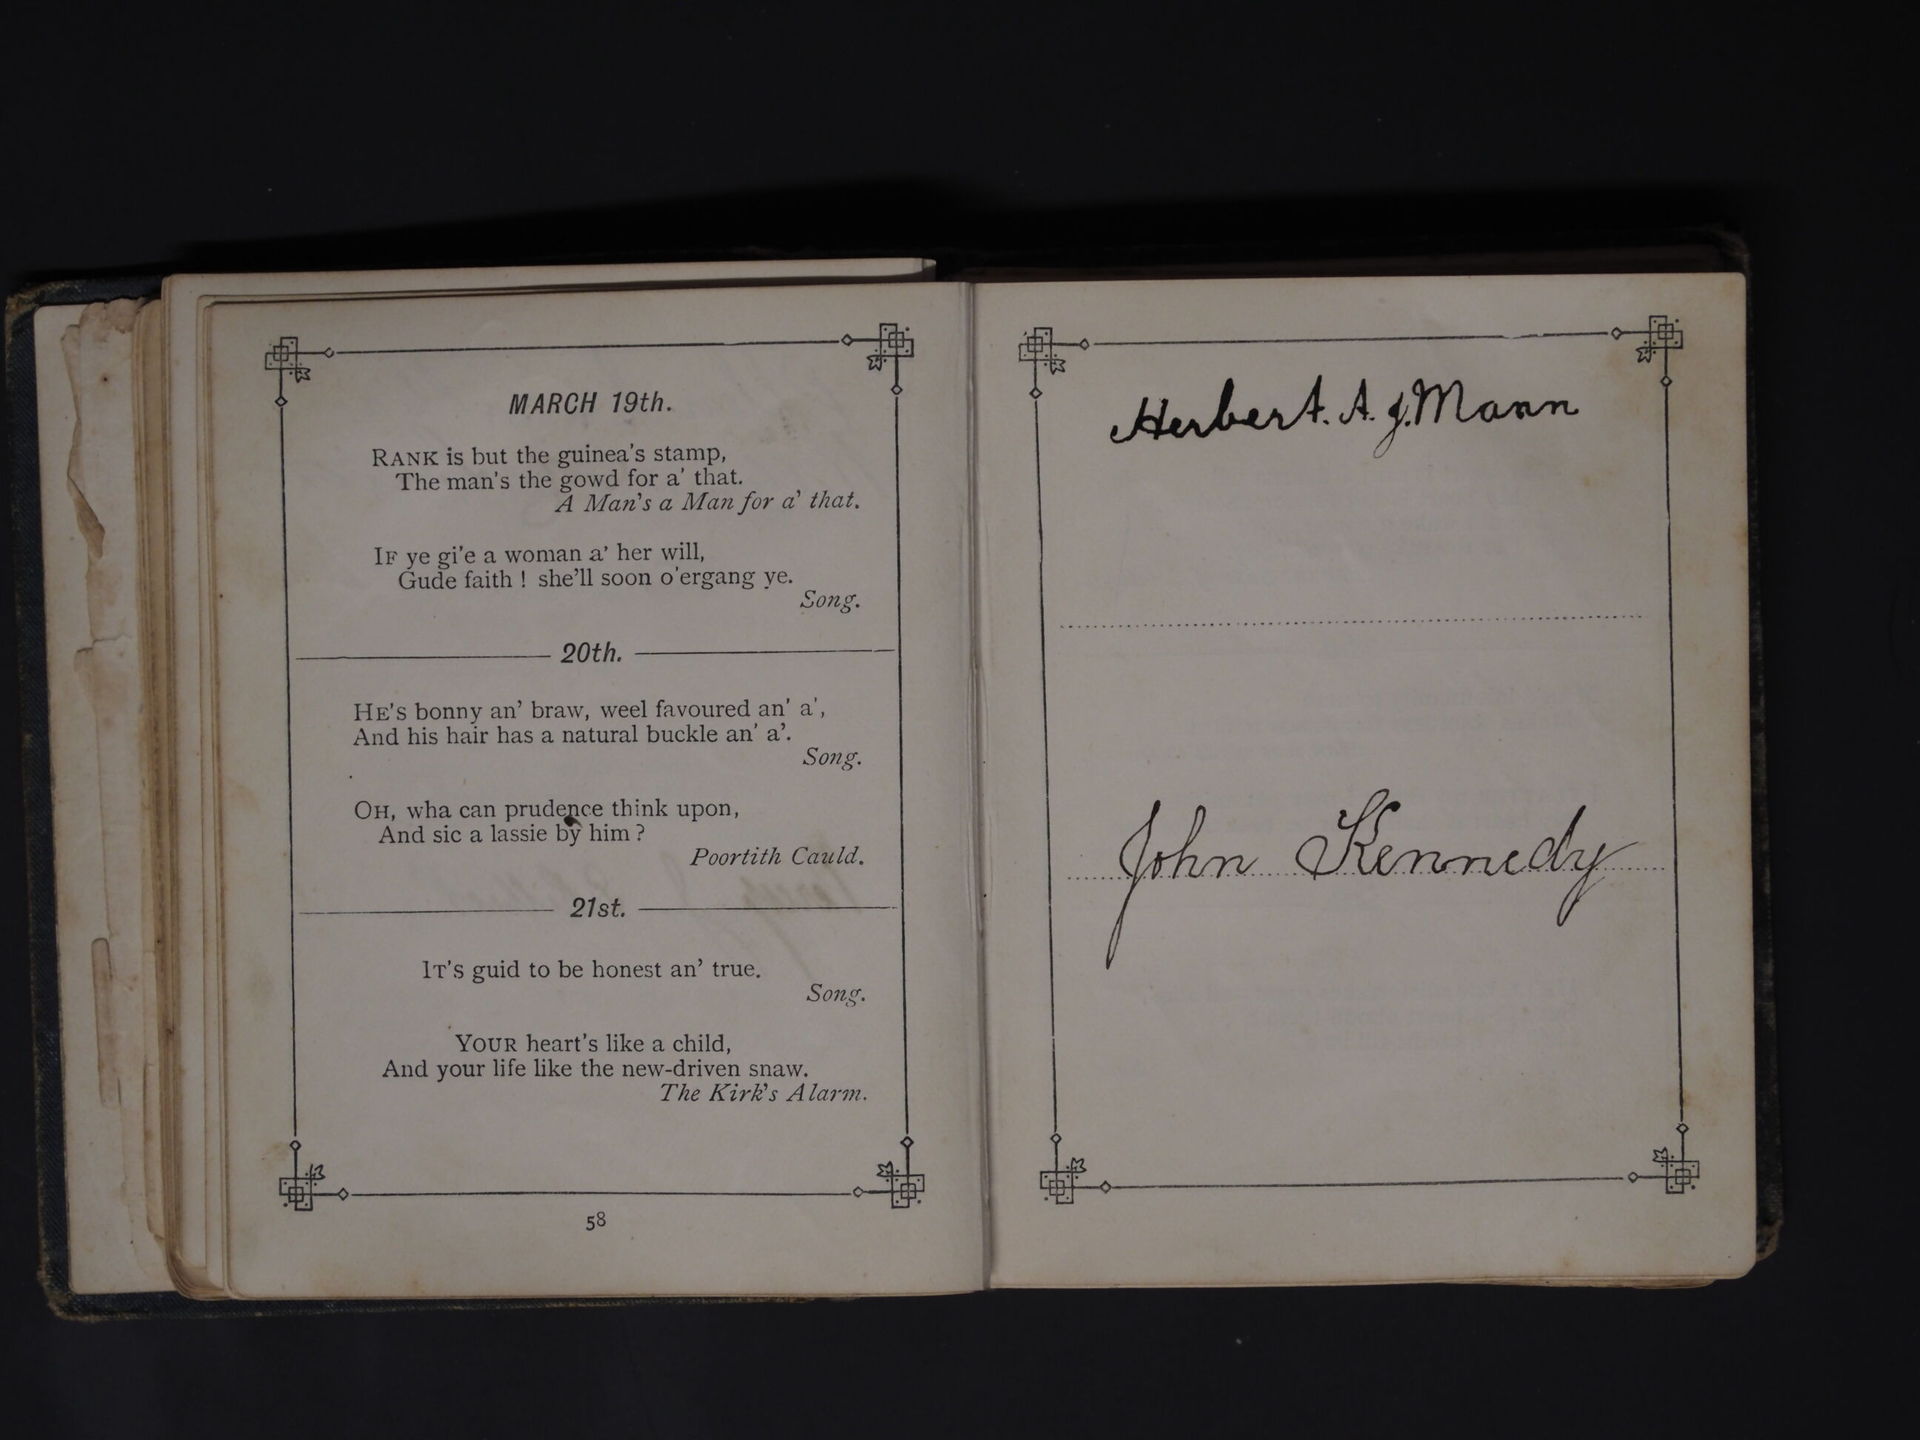 MARCH 19th.
RANK is but the guinea's stamp,
The man's the gowd for a' that.
A Man's a Man for a' that.
IF ye gi'e a woman a' her will,
Gude faith ! she'll soon o'ergang ye.
Song.
20th.
HE'S bonny an' braw, weel favoured an' a',
And his hair has a natural buckle an' a'.
Song.
OH, wha can prudence think upon,
And sic a lassie by him ?
Poortith Cauld.
21st.
IT'S guid to be honest an' true.
Song.
YOUR heart's like a child,
And your life like the new-driven snaw.
The Kirk's Alarm.
58
Herbert. A. J. Mann
John Kennedy